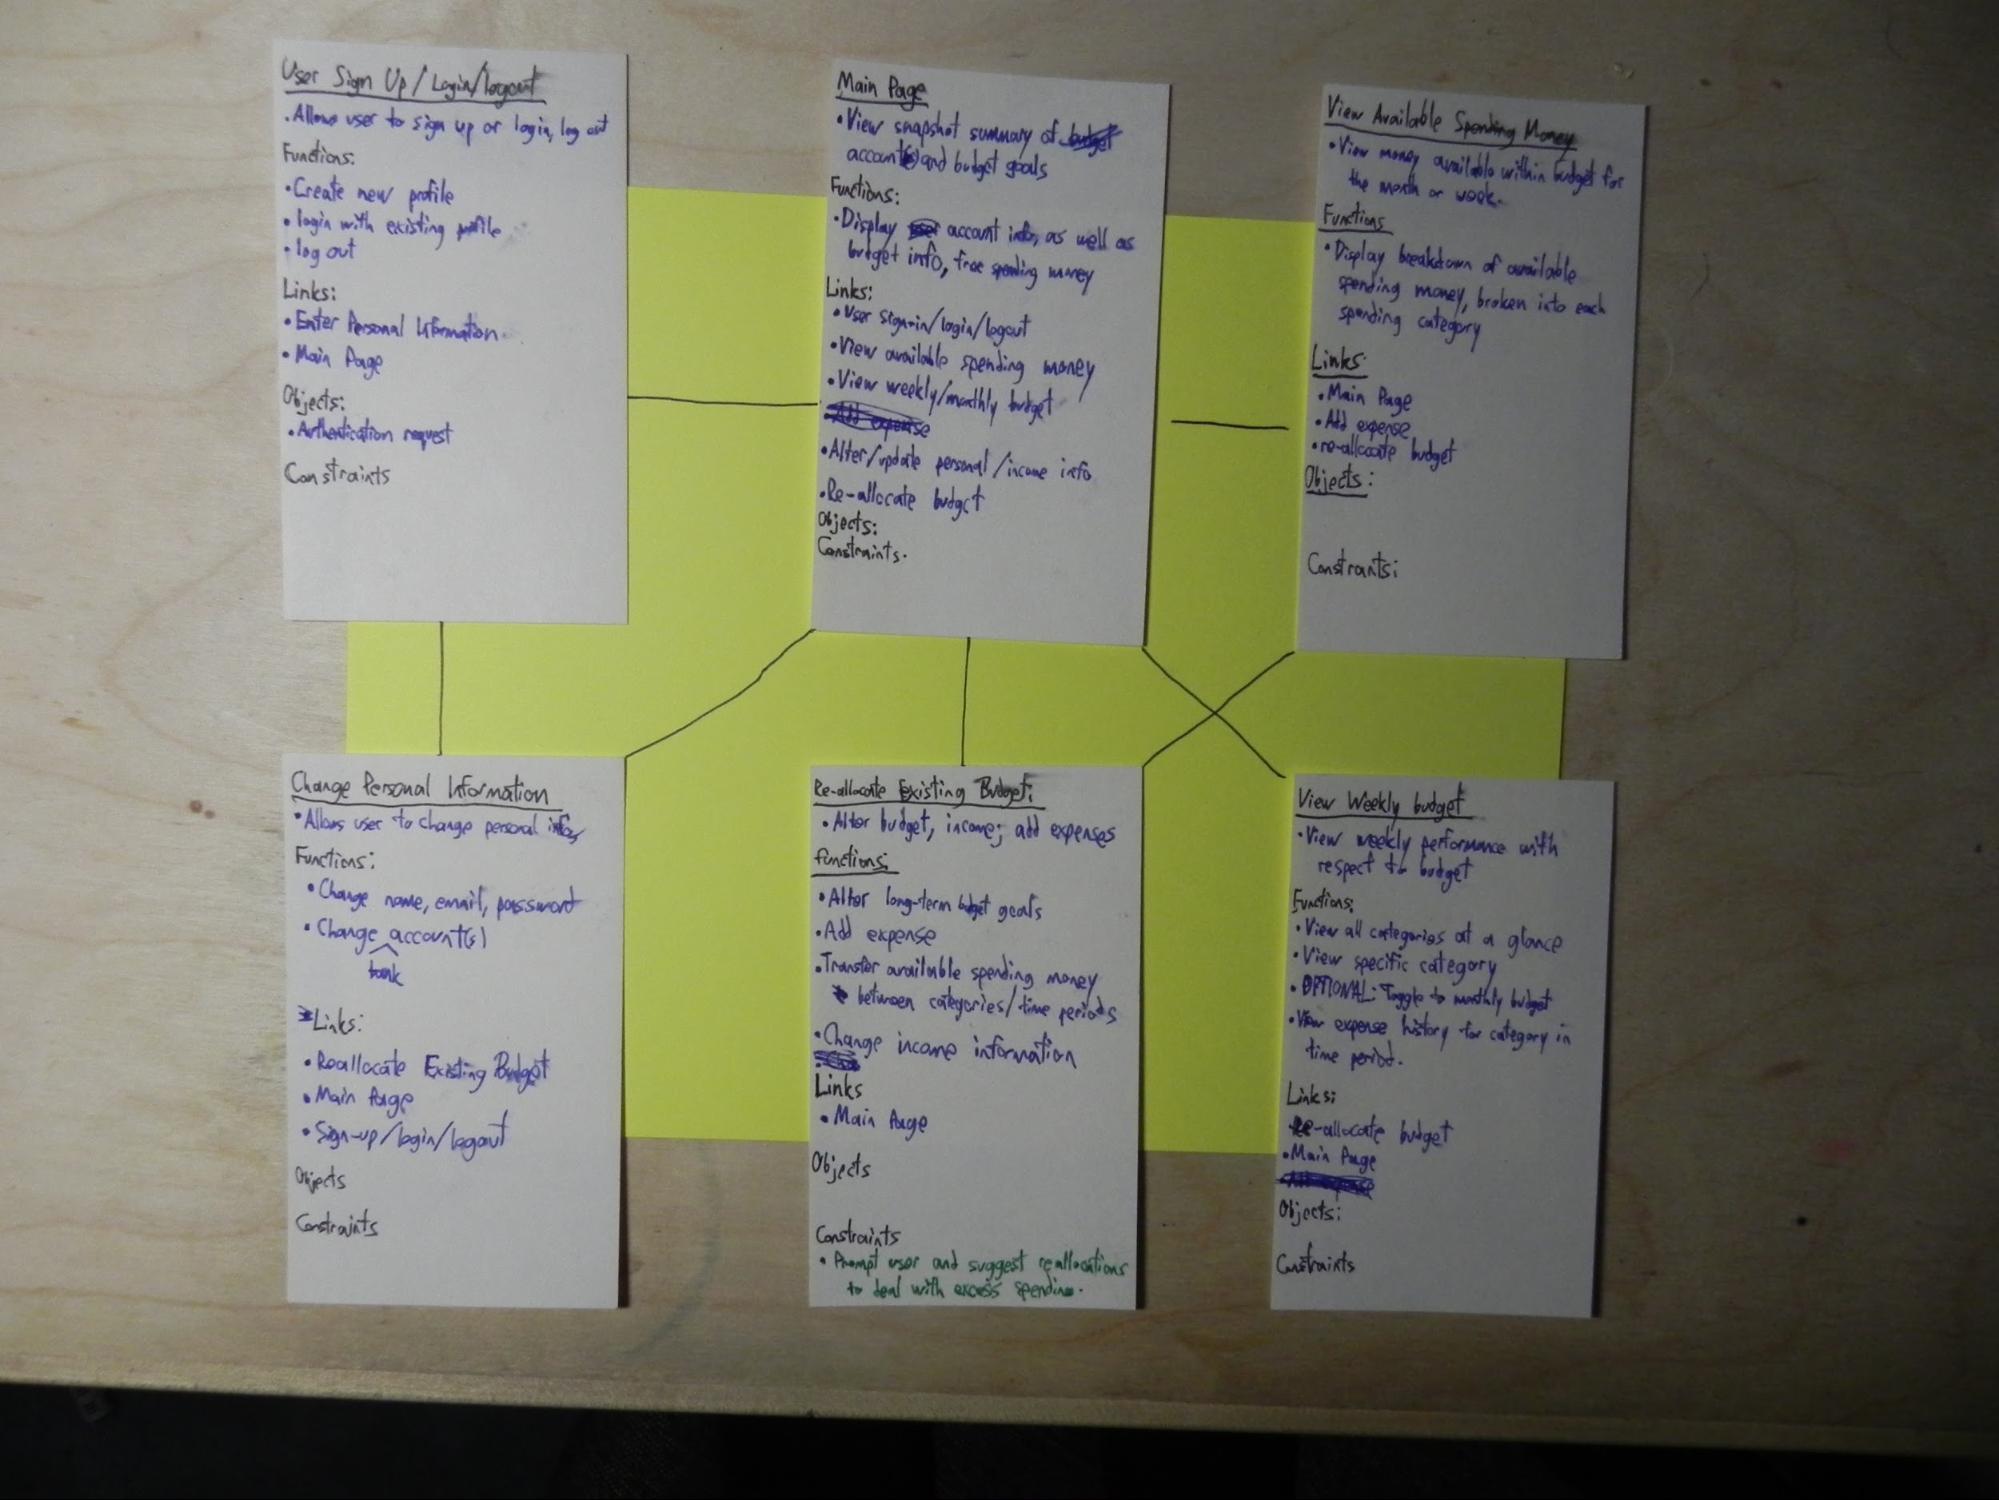 User Sign Up / Login/logout
• Allows user to sign up or login, log out
Functions:
• Create new profile
• login with existing profile
• log out
Links:
• Enter Personal Information
• Main Page
Objects:
• Authentication request
Constraints
Main Page
• View snapshot summary of budget
account(s) and budget goals
Functions:
• Display user account info, as well as
budget info, free spending money
Links:
• User sign-in/login/logout
• View available spending money
• View weekly/monthly budget
• Add expense
• Alter/update personal/income info
• Re-allocate budget
Objects:
Constraints.
View Available Spending Money
• View money available within budget for
the month or week.
Functions
• Display breakdown of available
spending money, broken into each
spending category
Links:
• Main Page
• Add expense
• re-allocate budget
Objects:
Constraints:
Change Personal Information
• Allows user to change personal info
Functions:
• Change name, email, password
• Change account(s)
bank
Links:
• Reallocate Existing Budget
• Main Page
• Sign-up/login/logout
Objects
Constraints
Re-allocate Existing Budget:
• Alter budget, income; add expenses
functions:
• Alter long-term budget goals
• Add expense
• Transfer available spending money
between categories/time periods
• Change income information
Links
• Main Page
Objects
Constraints
• Prompt user and suggest reallocations
to deal with excess spending.
View Weekly budget
• View weekly performance with
respect to budget
Functions:
• View all categories at a glance
• View specific category
• OPTIONAL: Toggle to monthly budget
• View expense history for category in
time period.
Links:
Re-allocate budget
• Main Page
Add expense
Objects:
Constraints